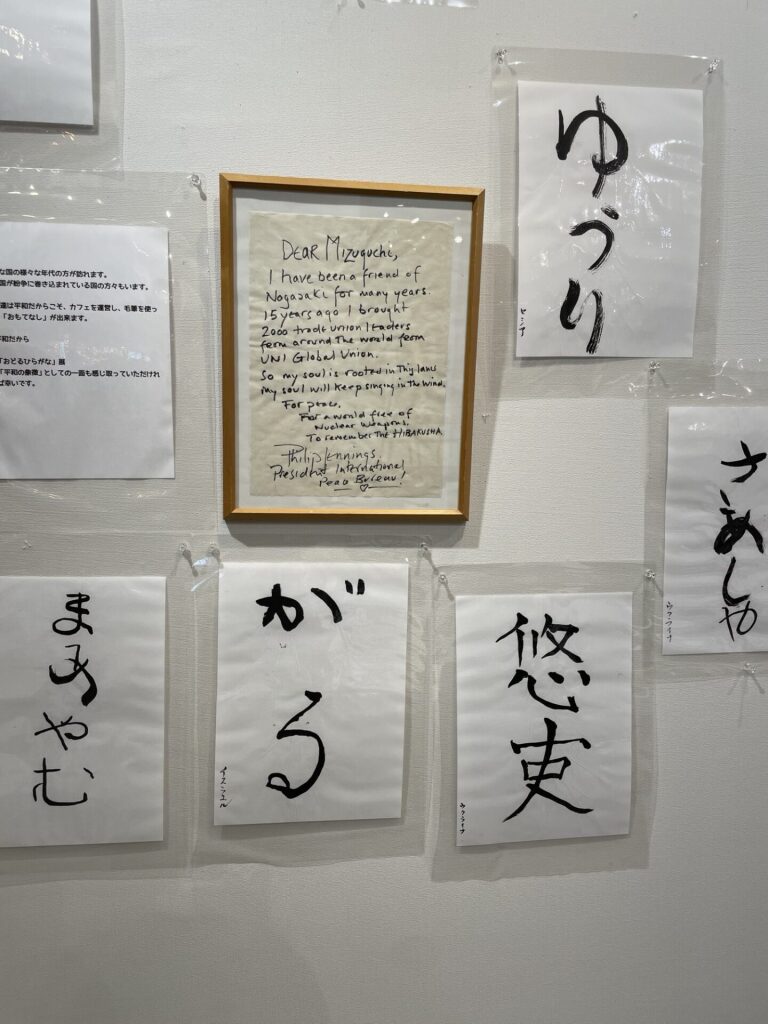 な国の様々な年代の方が訪れます。
国が紛争に巻き込まれている国の方々もいます。
達は平和だからこそ、カフェを運営し、毛筆を使っ
「おもてなし」が出来ます。
平和だから
「おどるひらがな」展
「平和の象徴」としての一面も感じ取っていただけれ
ば幸いです。
DEAR MIZUGUCHI,
I have been a friend of
Nagasaki for many years.
15 years ago I brought
2000 trade union leaders
from around The world from
UNI Global Union.
So my soul is rooted in This land
my soul will keep singing in the wind.
For peace.
For a world free of
Nuclear weapons.
To remember The HIBAKUSHA.
Philip Jennings.
President International
Peace Bureau!
ゆうり
さあしゃ
ウクライナ
まあやむ
がる
イスラエル
悠吏
ウクライナ